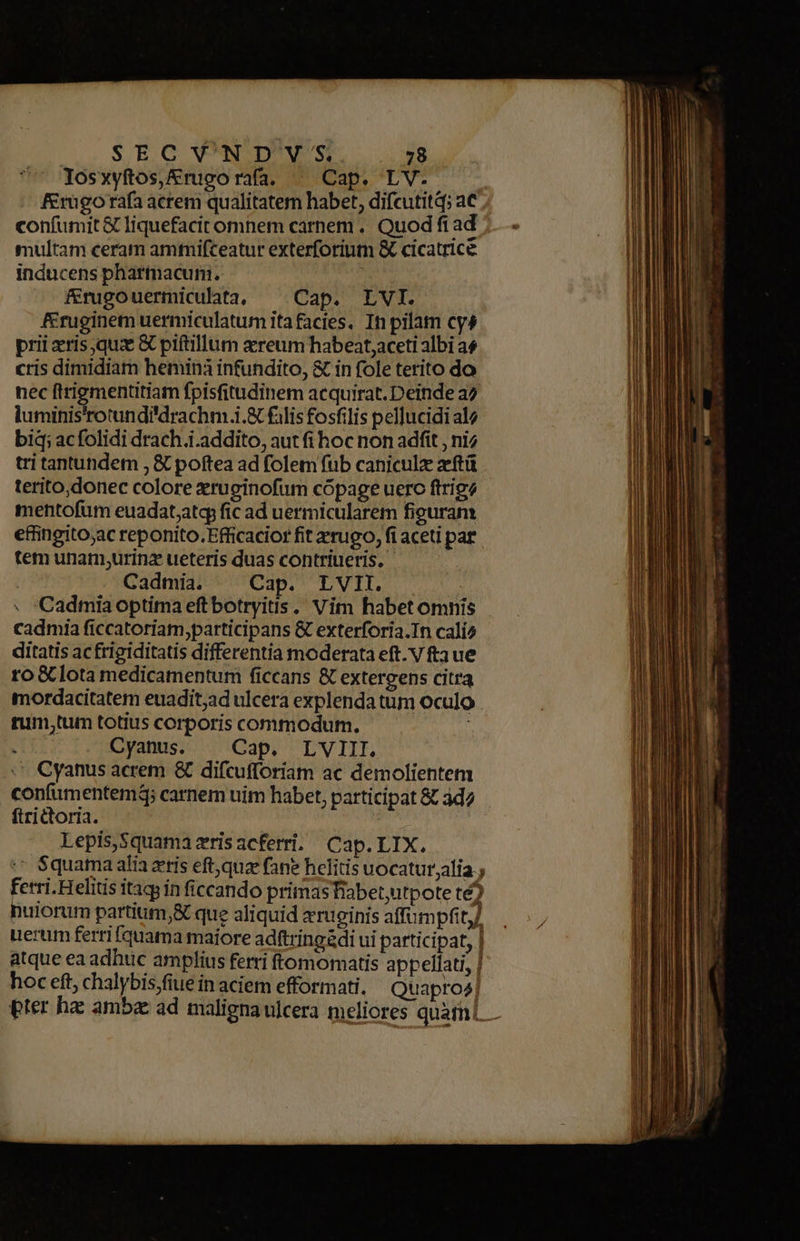 SECVNDVS. 78
Iosxyſtos,Ærugo raſa. Cap. LV.
Ærugo raſa acrem qualitatem habet, diſcutitq́; ac
conſumit & liquefacit omnem carnem. Quod ſi ad
multam ceram ammiſceatur exterſorium & cicatricē
inducens pharmacum.
Ærugo uermiculata. Cap. LVI.
Æruginem uermiculatum ita facies. In pilam cy⸗
prii æris,quæ & piſtillum æreum habeat,aceti albi a⸗
cris dimidiam heminā infundito, & in ſole terito do
nec ſtrigmentitiam ſpisſitudinem acquirat. Deinde a⸗
luminis rotundi drachm.i.& ſalis fosſilis pellucidi al⸗
biq́; ac ſolidi drach.i.addito, aut ſi hoc non adſit , ni⸗
tri tantundem , & poſtea ad ſolem ſub caniculæ æſtū
terito,donec colore æruginoſum cōpage uero ſtrig⸗
mentoſum euadat,atq; ſic ad uermicularem figuram
effingito,ac reponito.Efficacior fit ærugo, ſi aceti par
tem unam,urinæ ueteris duas contriueris.
Cadmia. Cap. LVII.
Cadmia optima eſt botryitis. Vim habet omnis
cadmia ſiccatoriam,participans & exterſoria.In cali⸗
ditatis ac frigiditatis differentia moderata eſt. Vſta ue
ro & lota medicamentum ſiccans & extergens citra
mordacitatem euadit,ad ulcera explenda tum oculo
rum,tum totius corporis commodum.
Cyanus. Cap. LVIII.
Cyanus acrem & diſcuſſoriam ac demolientem
conſumentemq́; carnem uim habet, participat & ad⸗
ſtrictoria.
Lepis,Squama æris ac ferri. Cap. LIX.
Squama alia æris eſt,quæ ſanè helitis uocatur,alia
ferri.Helitis itaq; in ſiccando primas habet,utpote te
nuiorum partium,& que aliquid æruginis aſſumpſit,
uerum ferri ſquama maiore adſtringēdi ui participat,
atque ea adhuc amplius ferri ſtomomatis appellati,
hoc eſt, chalybis,ſiue in aciem efformati. Quapro⸗
pter hæ ambæ ad maligna ulcera meliores quàm